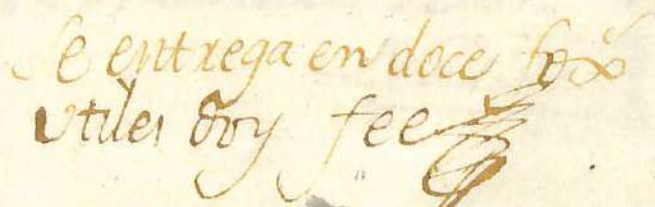 Se entrega en doce foxs
Utiles doy fee